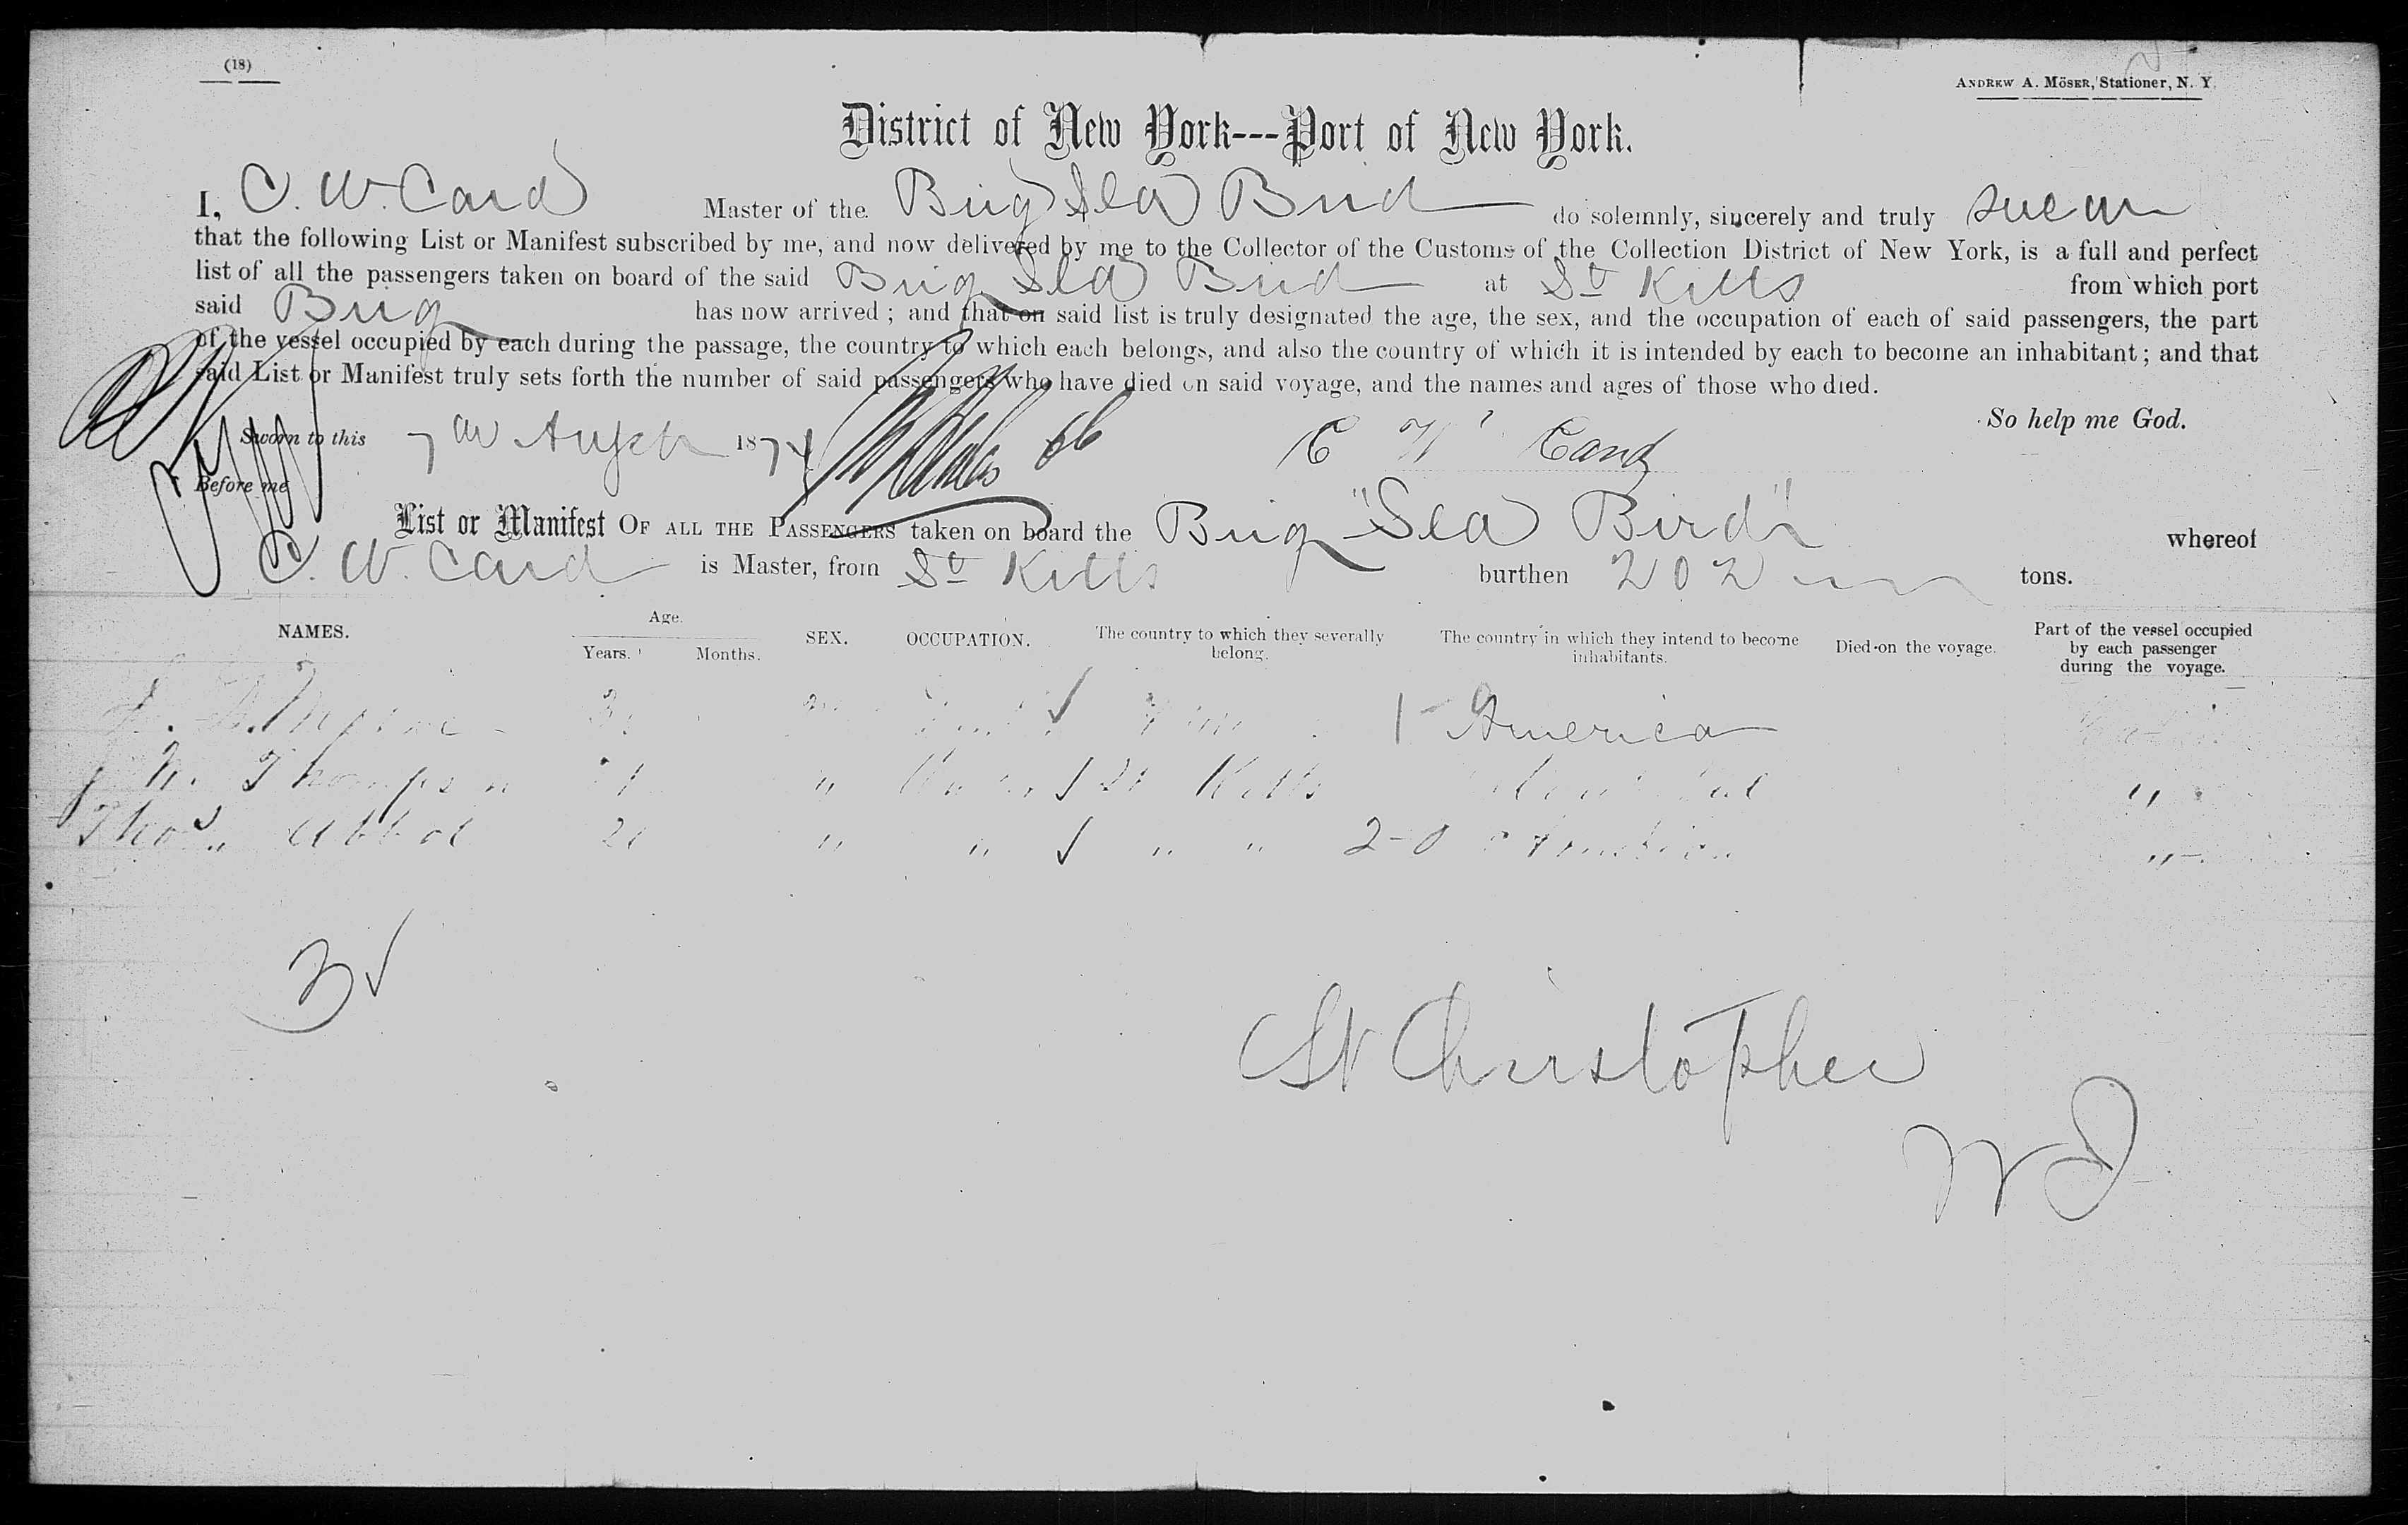 (18)
ANDREW A. MÖSER, Stationer, N. Y.
District of New York---Port of New York.
I, C. W. Card Master of the Brig Sea Bird do solemnly, sincerely and truly swear
that the following List or Manifest subscribed by me, and now delivered by me to the Collector of the Customs of the Collection District of New York, is a full and perfect
list of all the passengers taken on board of the said Brig Sea Bird at St Kitts from which port
said Brig has now arrived ; and that on said list is truly designated the age, the sex, and the occupation of each of said passengers, the part
of the vessel occupied by each during the passage, the country to which each belongs, and also the country of which it is intended by each to become an inhabitant ; and that
said List or Manifest truly sets forth the number of said passengers who have died on said voyage, and the names and ages of those who died.
So help me God.
Sworn to this 7 1874 C W Card
Before me
List or Manifest OF ALL THE PASSENGERS taken on board the Brig "Sea Bird" whereof
C. W. Card is Master, from St Kitts burthen 202 tons.
NAMES. Age. Years. Months. SEX. OCCUPATION. The country to which they severally belong. The country in which they intend to become inhabitants. Died on the voyage. Part of the vessel occupied by each passenger during the voyage.
1 America
Thompson " St Kitts "
Thos. Abbot " " " " 2 "
3
St Christopher
W I